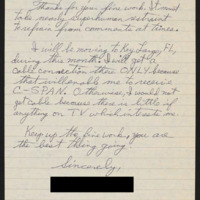 Thanks for your fine work. It must
take nearly superhuman restraint
to refrain from comments at times.
I will be moving to Key Largo, FL,
during this month. I will get a
cable connection there ONLY because
that will enable me to receive
C-SPAN. Otherwise, I would not
get cable because there is little if
anything on TV which interests me.
Keep up the fine work, you are
the best thing going.
Sincerely,